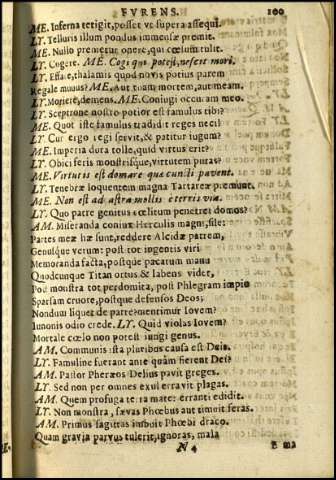 FVRENS. 100
ME. Inferna tetigit, posset vt supera assequi.
LY. Telluris illum pondus immensæ premit.
ME. Nullo premetur onere, qui cœlum tulit.
LY. Cogere. ME. Cogi qui potest, nescit mori.
LY. Effare, thalamis quod novis potius parem
Regale munus? ME. Aut tuam mortem, aut meam.
LY. Moriere, demens. ME. Coniugi occuram meo.
LY. Sceptrone nostro potior est famulus tibi?
ME. Quot iste famulus tradidit reges neci!
LY. Cur ergo regi servit, & patitur iugum?
ME. Imperia dura tolle, quid virtus erit?
LY. Obici feris monstrisque, virtutem putas?
ME. Virtutis est domare quæ cuncti pavent.
LY. Tenebræ loquentem magna Tartareæ premunt.
ME. Non est ad astra mollis e terris via.
LY. Quo patre genitus cœlitum penetret domos?
AM. Miseranda coniux Herculis magni, sile:
Partes meæ hæ sunt, reddere Alcidæ patrem,
Genusque verum: post tot ingentis viri
Memoranda facta, postque pacatum manu
Quodcunque Titan ortus & labens videt,
Post monstra tot perdomita, post Phlegram impio
Sparsam cruore, postque defensos Deos;
Nondum liquet de patre? mentimur Iovem?
Iunonis odio crede. LY. Quid violas Iovem?
Mortale cœlo non potest iungi genus.
AM. Communis ista pluribus causa est Deis.
LY. Famuline fuerant ante quàm fierent Dei?
AM. Pastor Pheræos Delius pavit greges.
LY. Sed non per omnes exul erravit plagas.
AM. Quem profuga terra mater errante edidit.
LY. Non monstra, sævas Phœbus aut timuit feras.
AM. Primus sagittas imbuit Phœbi draco.
Quam gravia parvus tulerit, ignoras, mala
N 4 E ma